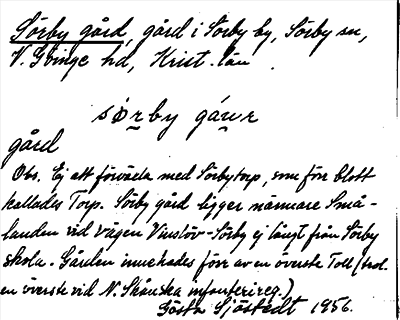 Sörby gård, gård i Sörby by, Sörby sn,
V. Göinge hd, Krist. län
sǿrby gáur
gård
Obs. Ej att förväxla med Sörbytorp, som förr blott
kallades Torp. Sörby gård ligger närmare Små-
landen vid vägen Vinslöv-Sörby ej långt från Sörby
skola. Gården innehades förr av en överste Toll (trol.
en överste vid N. Skånska infanterireg.)
Gösta Sjöstedt 1956.